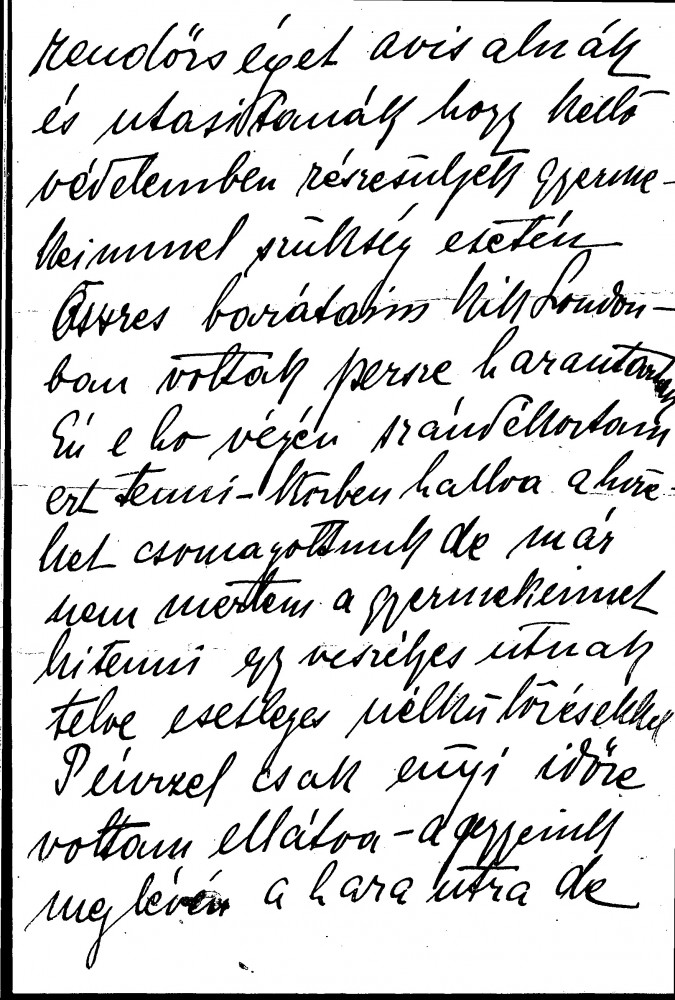 rendőrséget avisalnák
és utasitanák hogy kellő
védelemben részesüljek gyerme-
keimmel szükség esetén
Összes barátaim kik London-
ban voltak persze hazautaztak
Én e hó végén szándékoztam
ezt tenni - közben hallva a híre-
ket csomagoltunk de már
nem mertem a gyermekeimet
kitenni egy veszélyes utnak
telve esetleges nélkülözésekkel
Pénzzel csak enyi időre
voltam ellátva - a jegyeink
meglévén a haza utra de